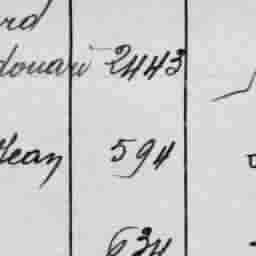 rd
douard 2443
Jean 594
634